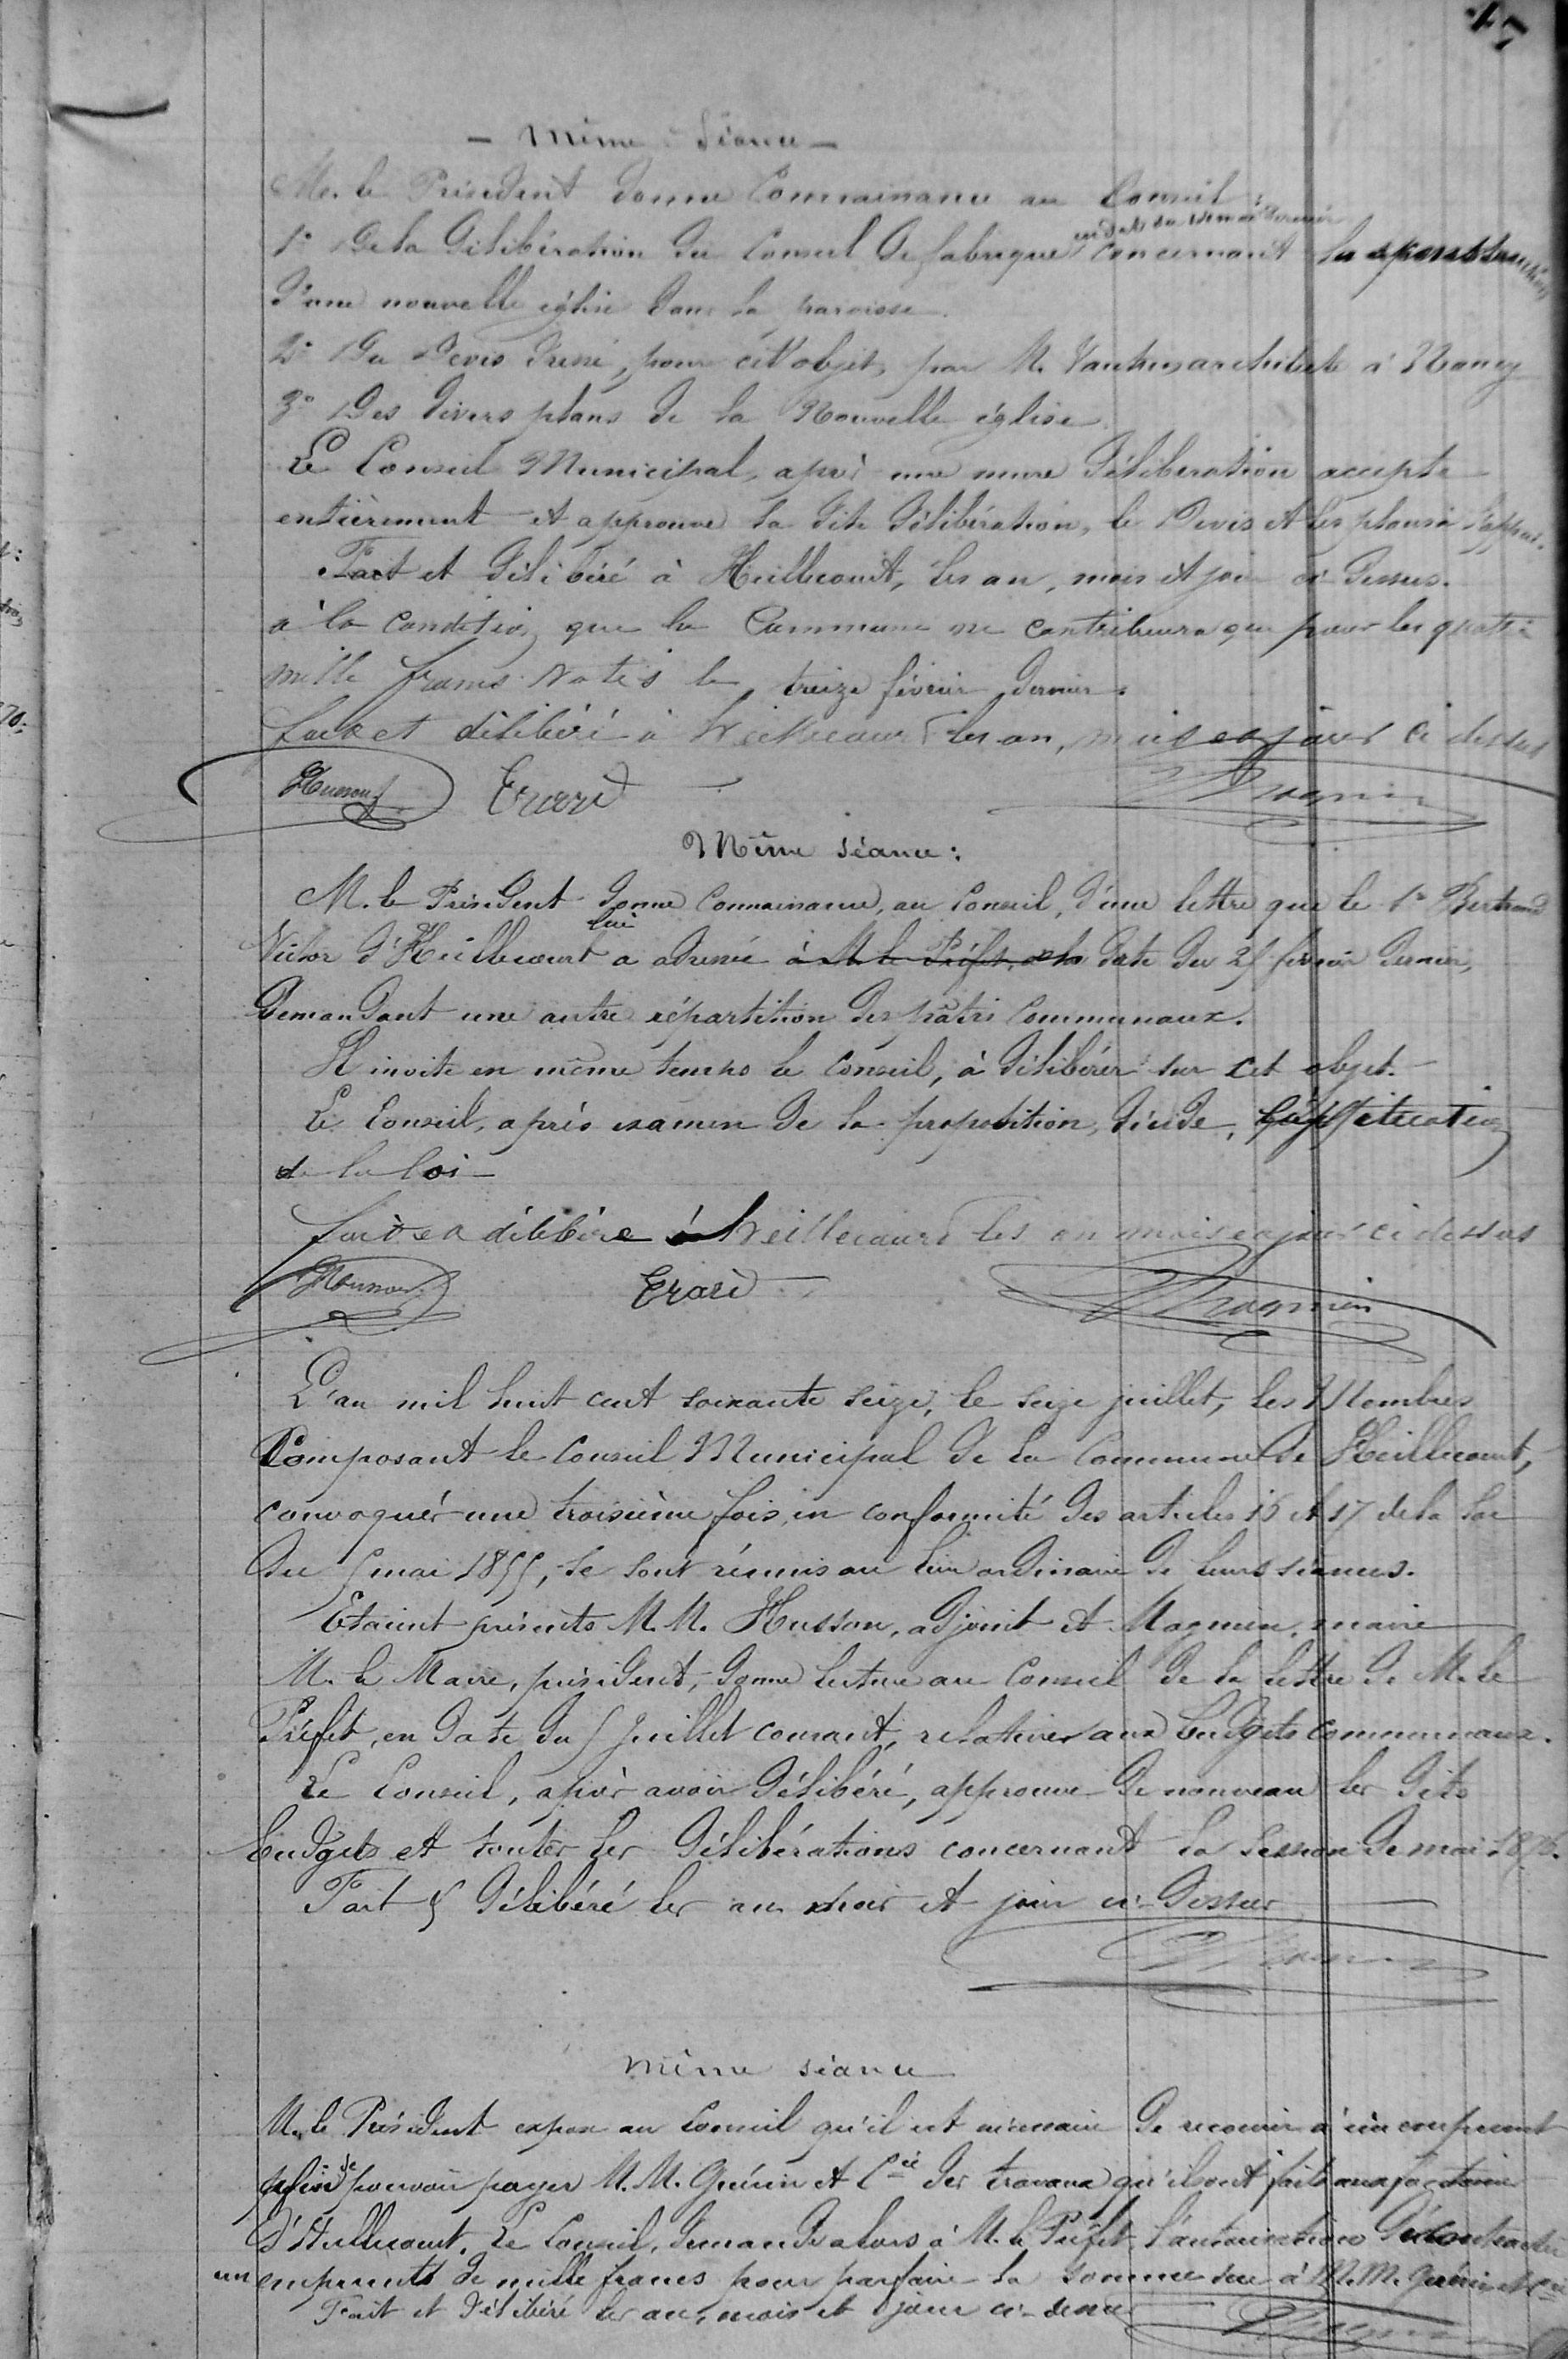 - Même Séance -
M. le Président donne Connaissance au Conseil :
en date du dernier
1° De la Délibération du Conseil de fabrique concernant la
d'une nouvelle église dans la paroisse.
2° Du Devis dressé, pour cet objet, par M. Vautrin architecte à Nancy
3° Des divers plans de la Nouvelle église
Le Conseil Municipal, après une mure délibération accepte
entièrement et approuve la dite délibération, le Devis et les plans à l'appui.
Fait et délibéré à Heillecourt, les an, mois et jour ci-dessus.
à la condition que la Commune ne contribuera que pour les quatre
mille francs votés le treize février dernier.
fait et délibéré à heillecourt les an, mois et jour ci dessus
Husson Erard Magnien
Même séance :
M. le Président donne Connaissance, au Conseil, d'une lettre que le Sr Bertrand
lui
Victor d'Heillecourt a adressée à M. le Préfet, date du 25 février dernier,
demandant une autre répartition des pâtis Communaux.
Il invite en même temps le Conseil, à délibérer sur cet objet.
Le Conseil, après examen de la proposition, décide,
de la loi
fait et délibéré à heillecourt les an mois et jour ci dessus
Husson Erard Magnien
L'an mil huit cent soixante seize, le seize juillet, les Membres
Composant le Conseil Municipal de la Commune de Heillecourt,
convoqués une troisième fois, en conformité des articles 15 et 17 de la loi
du 5 mai 1855, se sont réunis au lieu ordinaire de leurs séances.
Etaient présents M.M. Husson, adjoint et Magnien, maire
M. le Maire, président, donne lecture au Conseil de la lettre de M. le
Préfet, en date du 5 Juillet courant, relative aux budgets communaux.
Le Conseil, après avoir délibéré, approuve de nouveau les dits
budgets et toutes les délibérations concernant la session de mai 1876.
Fait & délibéré les an mois et jour ci-dessus
Magnien
Même séance
M. le Président expose au Conseil qu'il est nécessaire de recourir à un emprunt
de
afin pouvoir payer M.M. Guérin et Cie des travaux qu'ils ont fait aux fontaines
d'Heillecourt. Le Conseil, demande alors à M. le Préfet l'autorisation de contracter
un emprunt de mille francs pour parfaire la somme due à M.M. Guérin et Cie
Fait et délibéré les an, mois et jour ci-dessus
Magnien